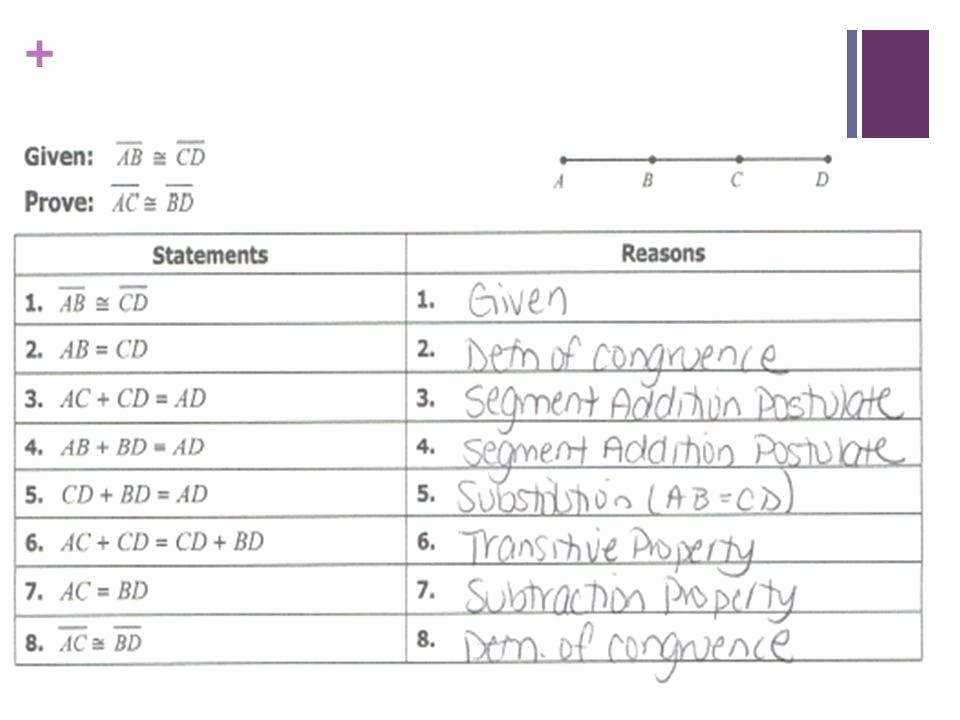 +
Given: AB ≅ CD
Prove: AC ≅ BD
A B C D
Statements Reasons
1. AB ≅ CD 1. Given
2. AB = CD 2. Defn of congruence
3. AC + CD = AD 3. Segment Addition Postulate
4. AB + BD = AD 4. Segment Addition Postulate
5. CD + BD = AD 5. Substitution (AB = CD)
6. AC + CD = CD + BD 6. Transitive Property
7. AC = BD 7. Subtraction Property
8. AC ≅ BD 8. Defn. of congruence